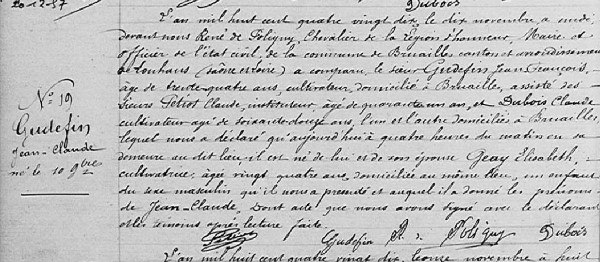 20-12-57
Dubois
L'an mil huit cent quatre vingt dix le dix novembre à midi
devant nous René de Poligny, Chevalier de la Légion d'honneur, Maire et
officier de l'état civil, de la commune de Bruailles canton et arrondissement
de Louhans (Saône et Loire) a comparu le sieur Gudefin Jean François,
âgé de trente quatre ans, cultivateur, domicilié à Bruailles, assisté des
sieurs Pétiot Claude, instituteur, âgé de quarante un ans, et Dubois Claude
cultivateur âgé de soixante douze ans, l'un et l'autre domiciliés à Bruailles,
lequel nous a déclaré qu'aujourd'hui à quatre heures du matin en sa
demeure au dit lieu, il est né de lui et de son épouse Geay Elisabeth,
cultivatrice, âgée vingt quatre ans domiciliée au même lieu, un enfant
du sexe masculin qu'il nous a présenté et auquel il a donné les prénoms
de Jean-Claude, Dont acte que nous avons signé avec le déclarant
et les témoins après lecture faite.
Gudefin R. de Poligny Dubois
L'an mil huit cent quatre vingt dix, le onze novembre à huit
N° 19
Gudefin
Jean-Claude
né le 10 9bre